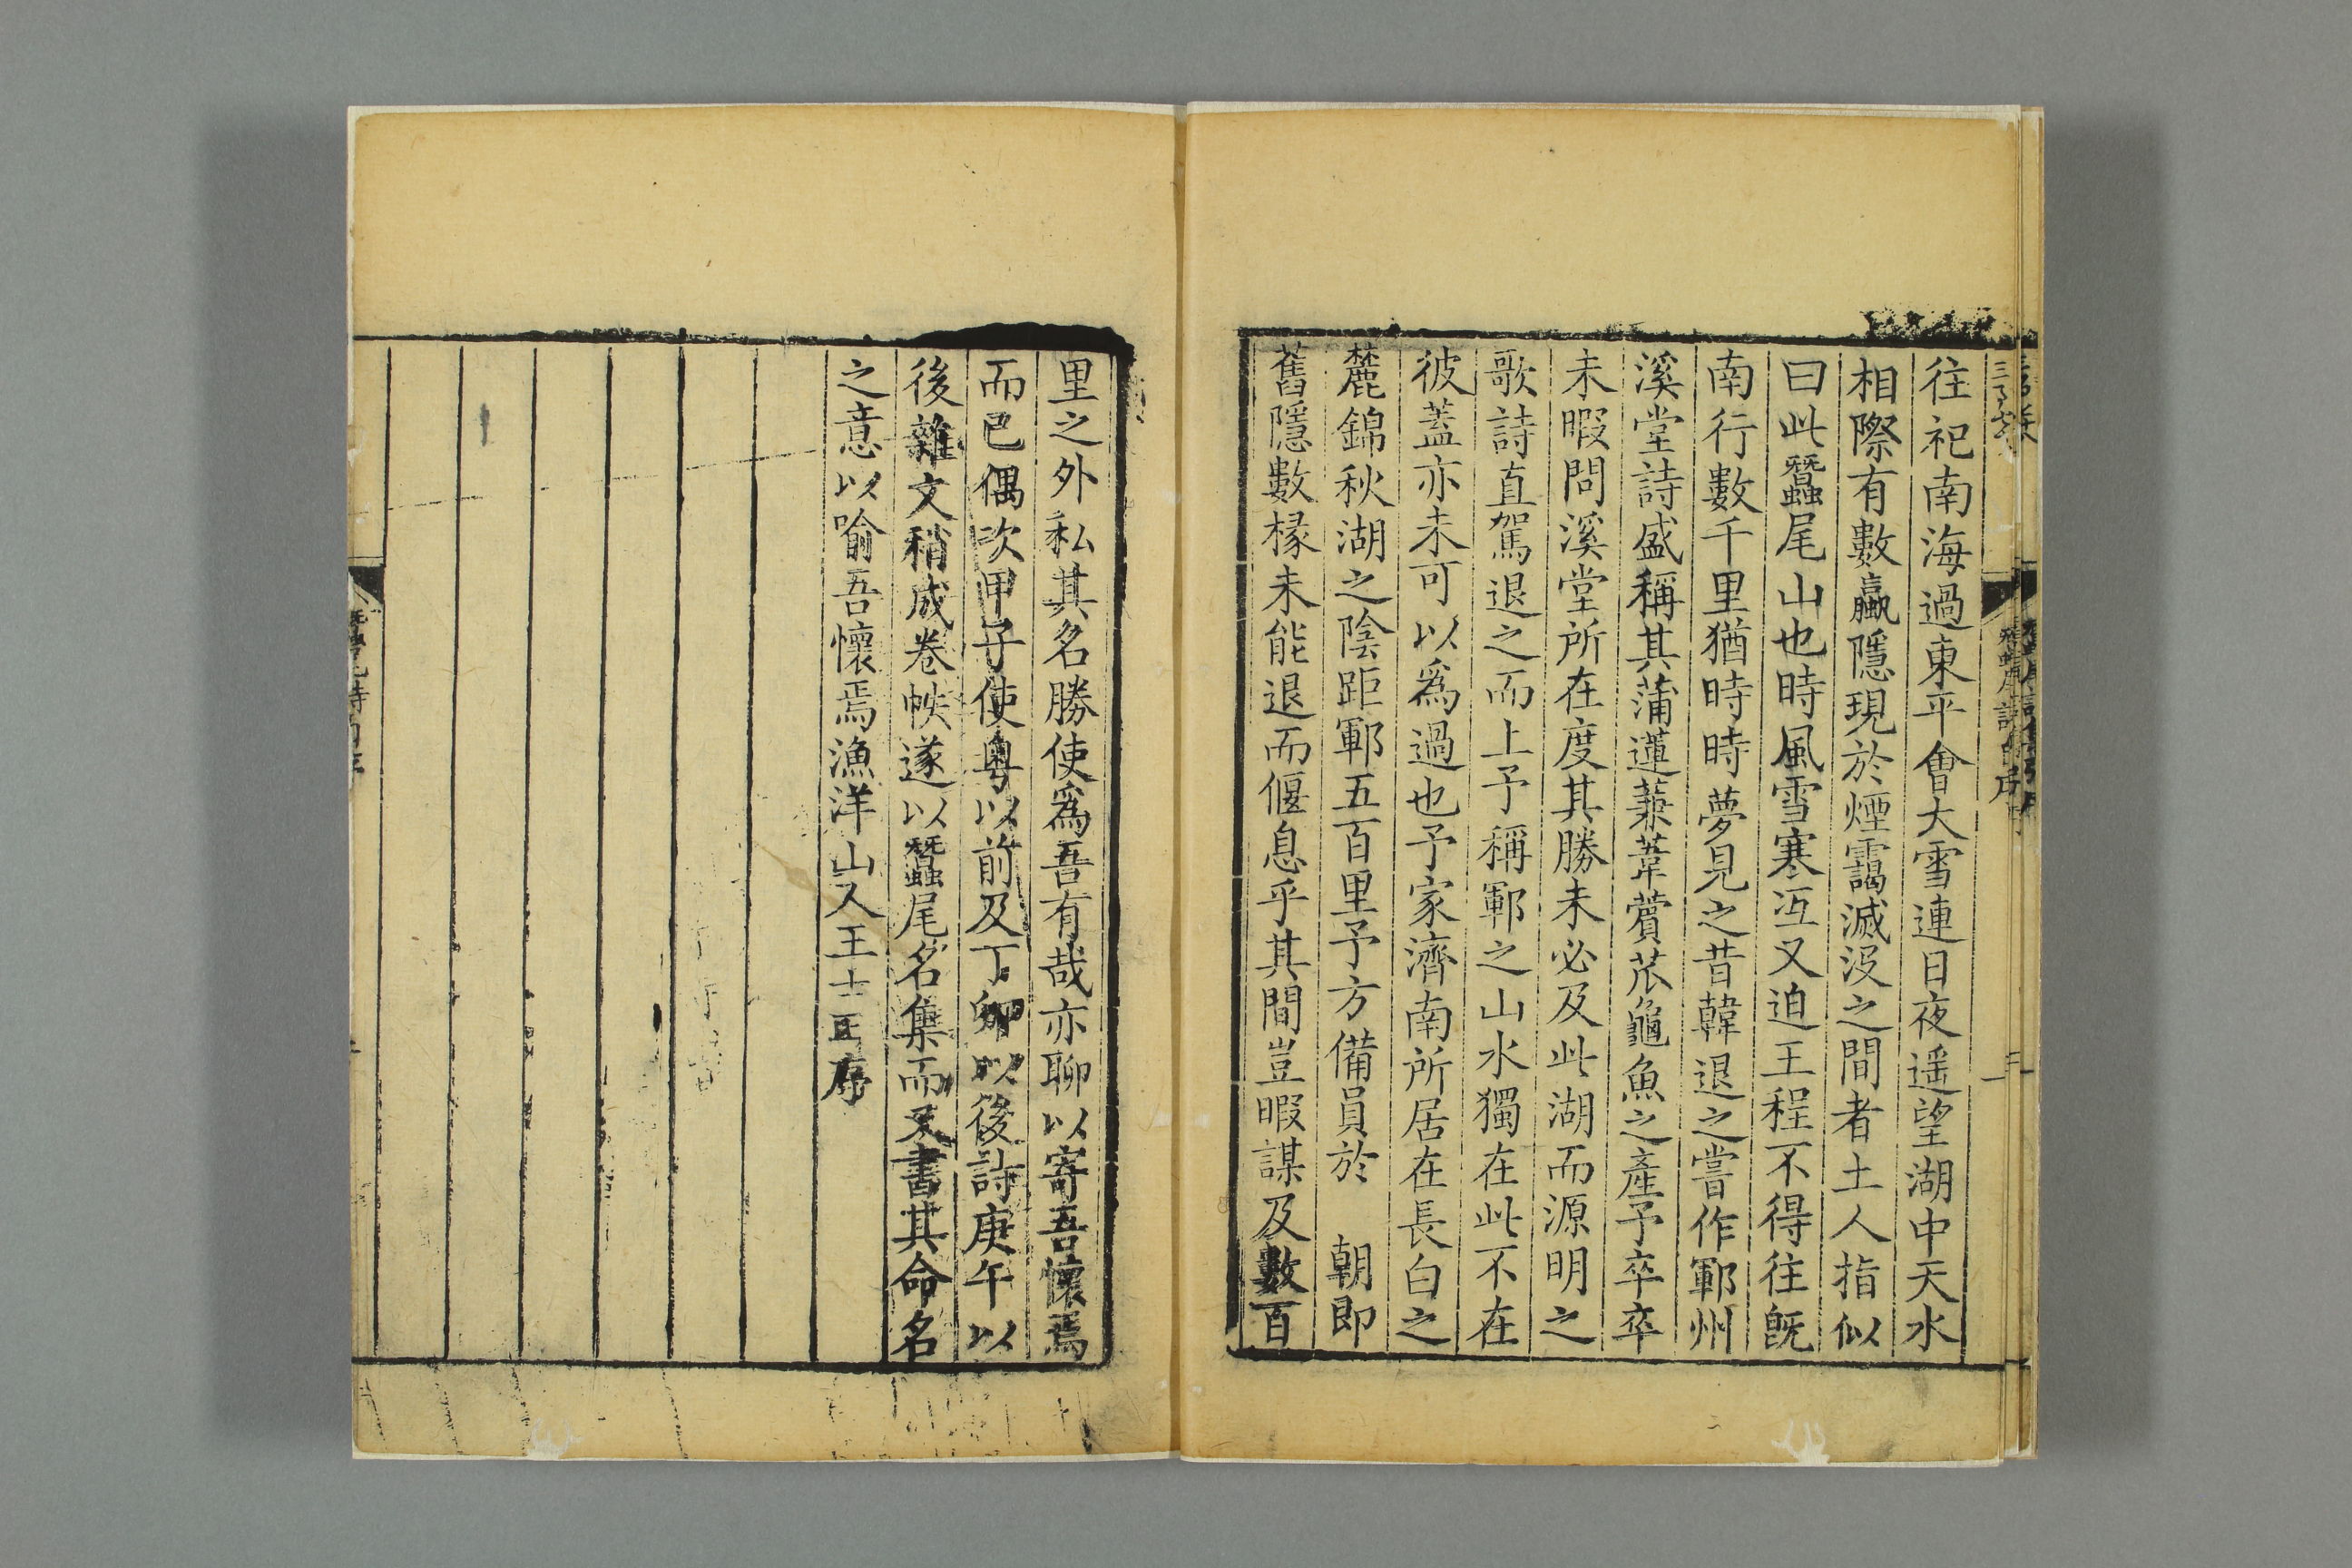 往祀南海過東平會大雪連日夜遥望湖中天水
相際有數蠃隱現於煙靄滅没之間者土人指似
曰此蠶尾山也時風雪寒冱又迫王程不得往旣
南行數千里猶時時夢見之昔韓退之嘗作鄆州
溪堂詩盛稱其蒲蓮蒹葦薲苽龜魚之產予卒卒
未暇問溪堂所在度其勝未必及此湖而源明之
歌詩直駕退之而上予稱鄆之山水獨在此不在
彼蓋亦未可以爲過也予家濟南所居在長白之
麓錦秋湖之陰距鄆五百里予方備員於 朝即
舊隱數椽未能退而偃息乎其間豈暇謀及數百
里之外私其名勝使爲吾有哉亦聊以寄吾懷焉
而已偶次甲子使粤以前及丁卯以後詩庚午以
後雜文稍成卷帙遂以蠶尾名集而又書其命名
之意以喻吾懷焉漁洋山人王士正序